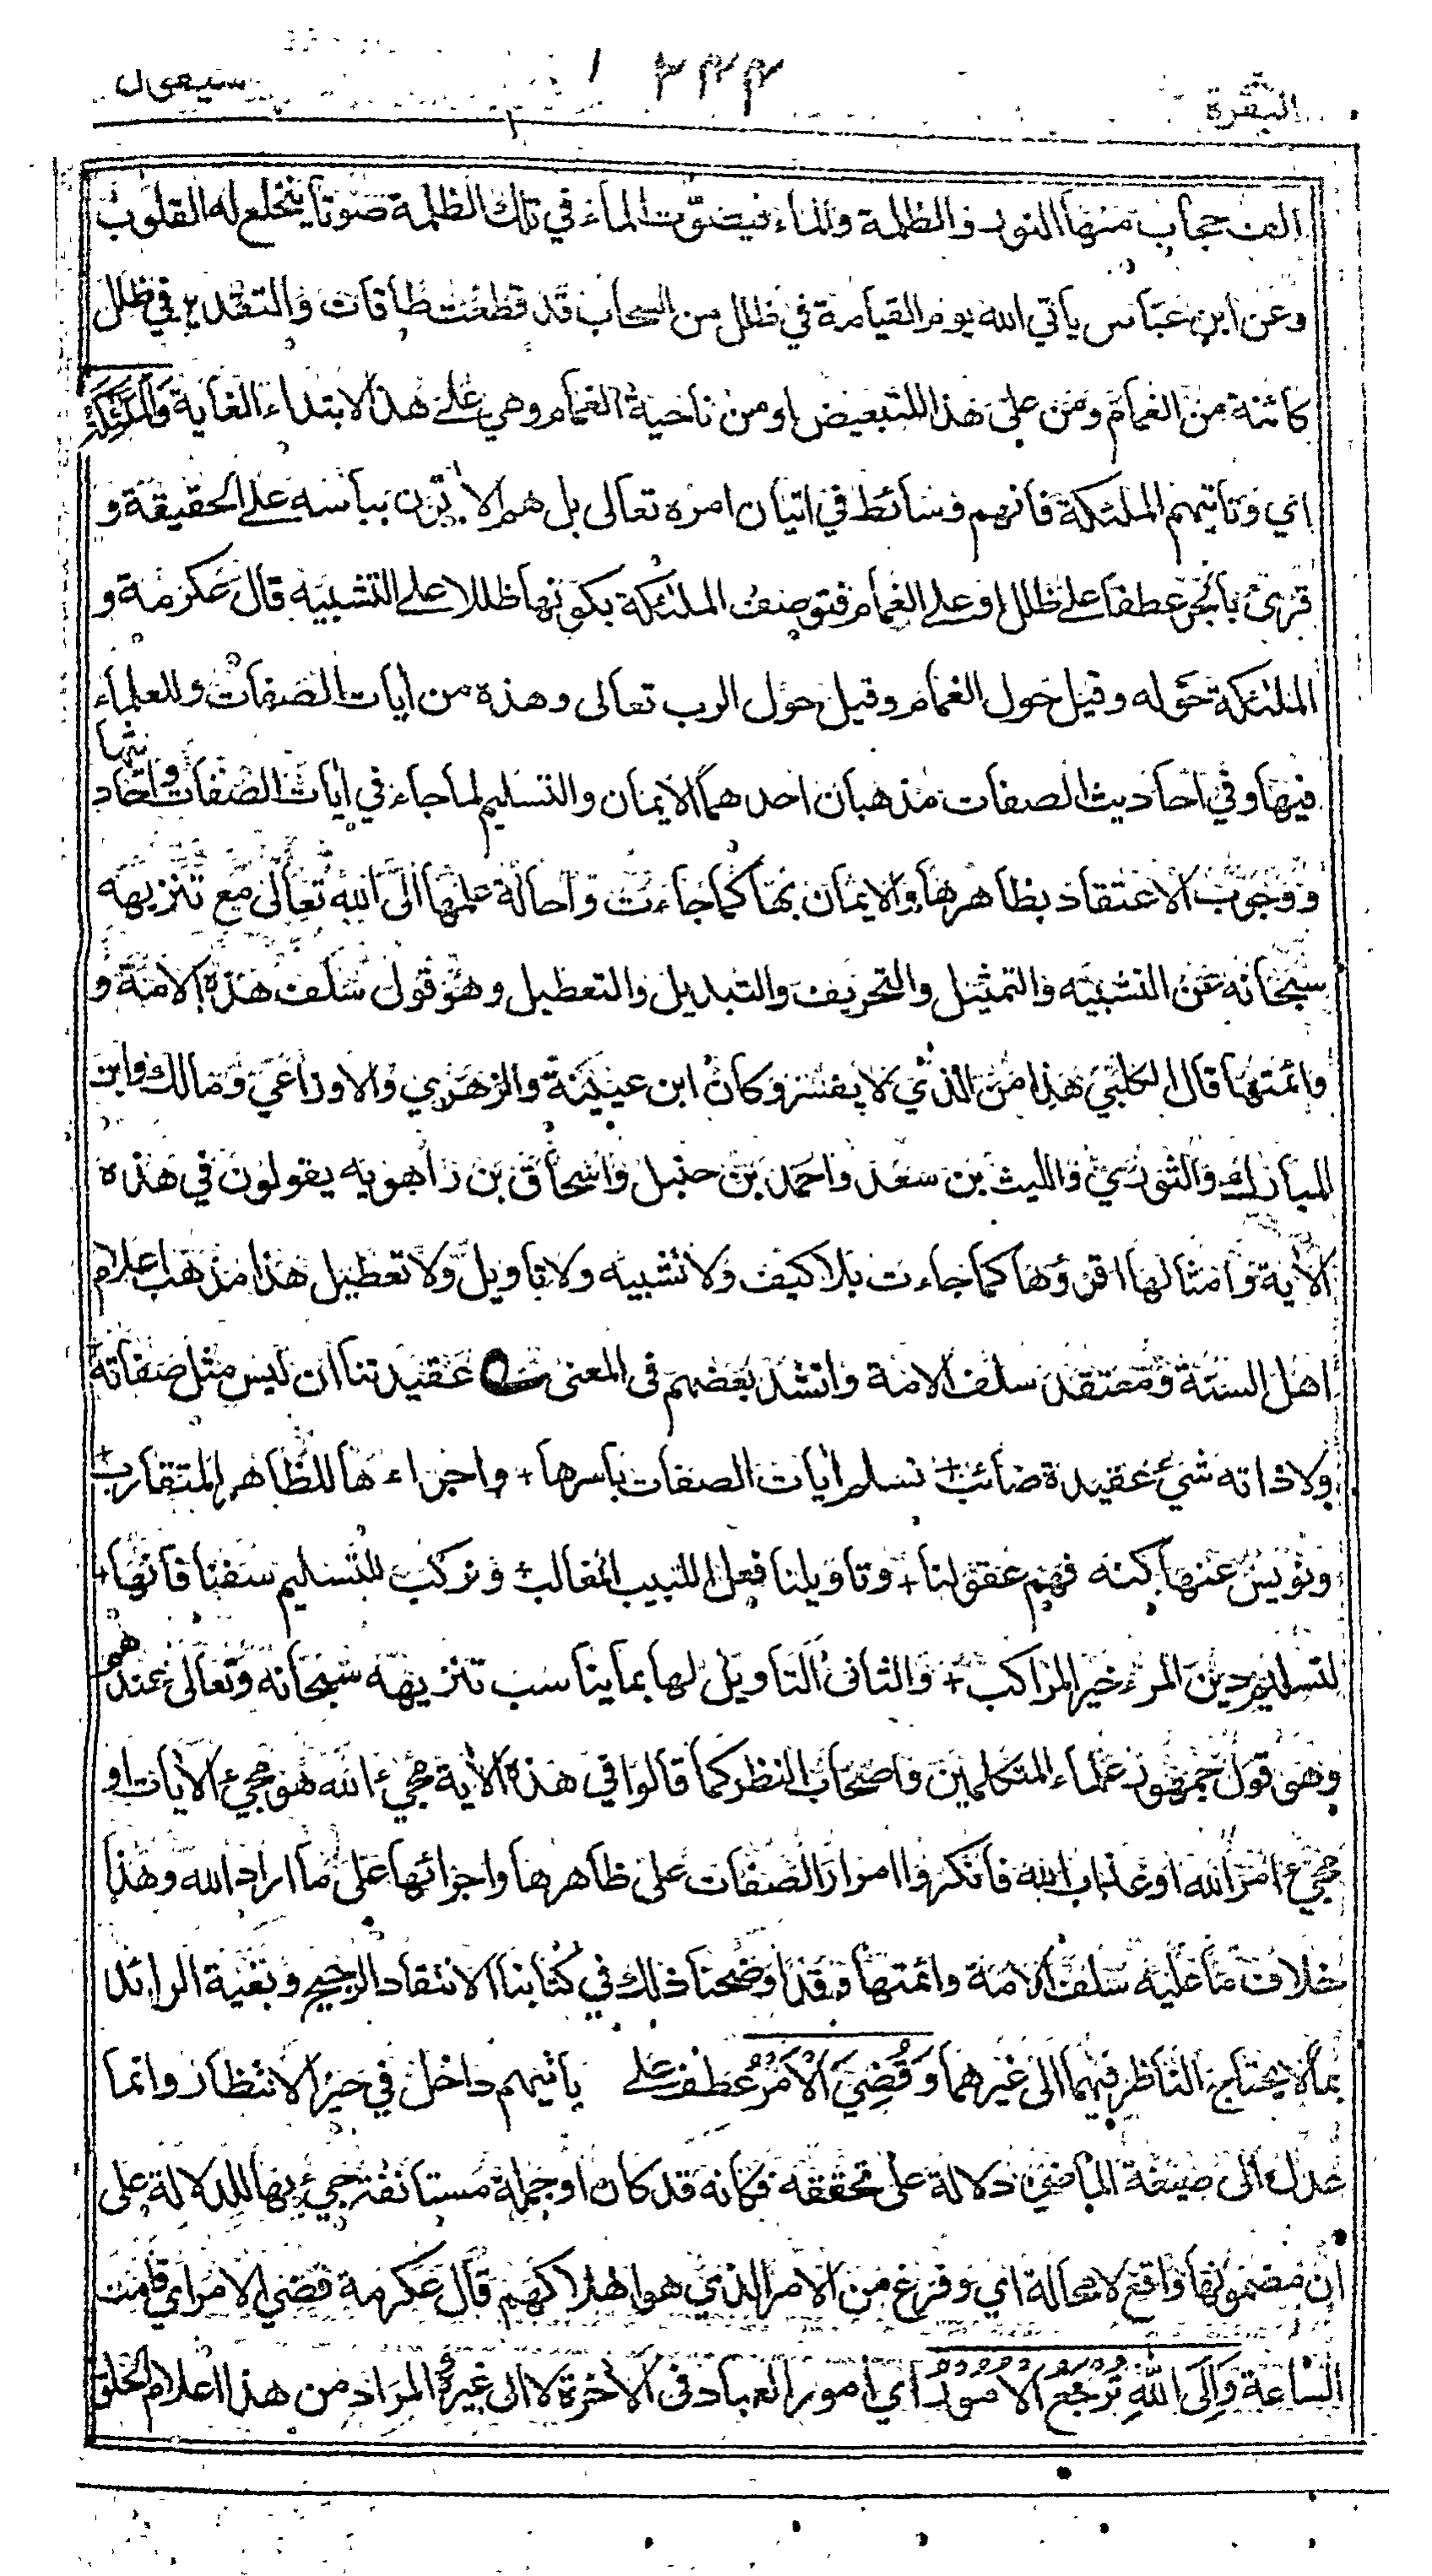 البقرة ٣٣٣ ١ سيعول
الف حجاب منها النور والظلمة والماء فيصوّت الماء في تلك الظلمة صوتا ينخلع له القلوب
وعن ابن عباس يأتي الله يوم القيامة في ظلل من السحاب قد قطعت طاقات والتقدير في ظلل
كائنة من الغمام ومن على هذا للتبعيض او من ناحية الغمام وهي على هذا لابتداء الغاية وَالْمَلٰئِكَةُ
اي وتاتيهم الملئكة فانهم وسائط في اتيان امره تعالى بل هم الأتون ببأسه على الحقيقة و
قرئ بالجر عطفا على ظلل او على الغمام فتوصف الملئكة بكونها ظللا على التشبيه قال عكرمة و
الملئكة حوله وقيل حول الغمام وقيل حول الرب تعالى وهذه من ايات الصفات وللعلماء
فيها وفي احاديث الصفات مذهبان احدهما الايمان والتسليم لما جاء في ايات الصفات واحاديثها
ووجوب الاعتقاد بظاهرها والايمان بها كما جاءت واحالة علمها الى الله تعالى مع تنزيهه
سبحانه عن التشبيه والتمثيل والتحريف والتبديل والتعطيل وهو قول سلف هذه الامة و
وائمتها قال الكلبي هذا من الذي لا يفسر وكان ابن عيينة والزهري والاوزاعي ومالك وابن
المبارك والثوري والليث بن سعد واحمد بن حنبل واسحاق بن راهويه يقولون في هذه
الأية وامثالها اقرؤها كما جاءت بلا كيف ولا تشبيه ولا تاويل ولا تعطيل هذا مذهب اعلام
اهل السنة ومعتقد سلف الامة وانشد بعضهم فى المعنى عقيدتنا ان ليس مثل صفاته
ولا ذاته شيء عقيدة صائب + نسلم ايات الصفات باسرها + واجراءها للظاهر المتقارب +
ونؤيس عنها كنه فهم عقولنا + وتاويلنا فعل اللبيب المغالب + ونركب للتسليم سفنا فانها +
لتسليم دين المرء خير المراكب + والثانى التاويل لها بما يناسب تنزيهه سبحانه وتعالى عندهم
وهو قول جمهور علماء المتكلمين واصحاب النظر كما قالوا في هذه الأية مجيء الله هو مجيء الأيات او
مجيء امر الله او عذاب الله فانكروا امرار الصفات على ظاهرها واجرائها على ما اراد الله وهذا
خلاف ما عليه سلف الامة وائمتها وقد اوضحنا ذلك في كتابنا الانتقاد الرجيح وبغية الرائد
بما لا يحتاج الناظر فيهما الى غيرهما وَقُضِيَ الْاَمْرُ عطف على يأتيهم داخل في حيز الانتظار وانما
عدل الى صيغة الماضي دلالة على تحققه فكانه قد كان او جملة مستانفة جيء بها للدلالة على
ان مضمونها واقع لا محالة اي وفرغ من الامر الذي هو اهلاكهم قال عكرمة قضي الامر اي قامت
الساعة وَاِلَى اللهِ تُرْجَعُ الْاُمُوْرُ اي امور العباد فى الأخرة لا الى غيره المراد من هذا اعلام الخلق